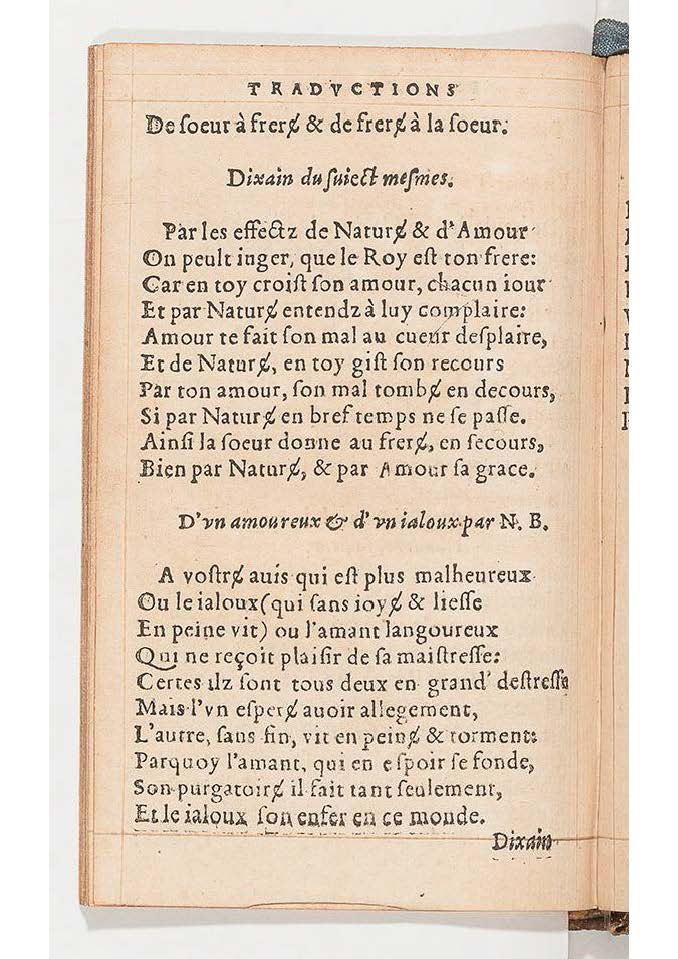 TRADVCTIONS
De ſoeur à frerɇ & de frerɇ à la ſoeur.
Dixain du ſuiect meſmes.
Par les effectz de Naturɇ & d'Amour
On peult iuger, que le Roy eſt ton frere:
Car en toy croiſt ſon amour, chacun iour
Et par Naturɇ entendz à luy complaire:
Amour te fait ſon mal au cueur deſplaire,
Et de Naturɇ, en toy giſt ſon recours
Par ton amour, ſon mal tombɇ en decours,
Si par Naturɇ en bref temps ne ſe paſſe.
Ainſi la ſoeur donne au frerɇ, en ſecours,
Bien par Naturɇ, & par Amour ſa grace.
D'vn amoureux & d'vn ialoux par N. B.
A voſtrɇ auis qui eſt plus malheureux
Ou le ialoux (qui ſans ioyɇ & lieſſe
En peine vit) ou l'amant langoureux
Qui ne reçoit plaiſir de ſa maiſtreſſe:
Certes ilz ſont tous deux en grand' deſtreſſe
Mais l'vn eſperɇ auoir allegement,
L'autre, ſans fin, vit en peinɇ & torment:
Parquoy l'amant, qui en eſpoir ſe fonde,
Son purgatoirɇ il fait tant ſeulement,
Et le ialoux ſon enfer en ce monde.
Dixain